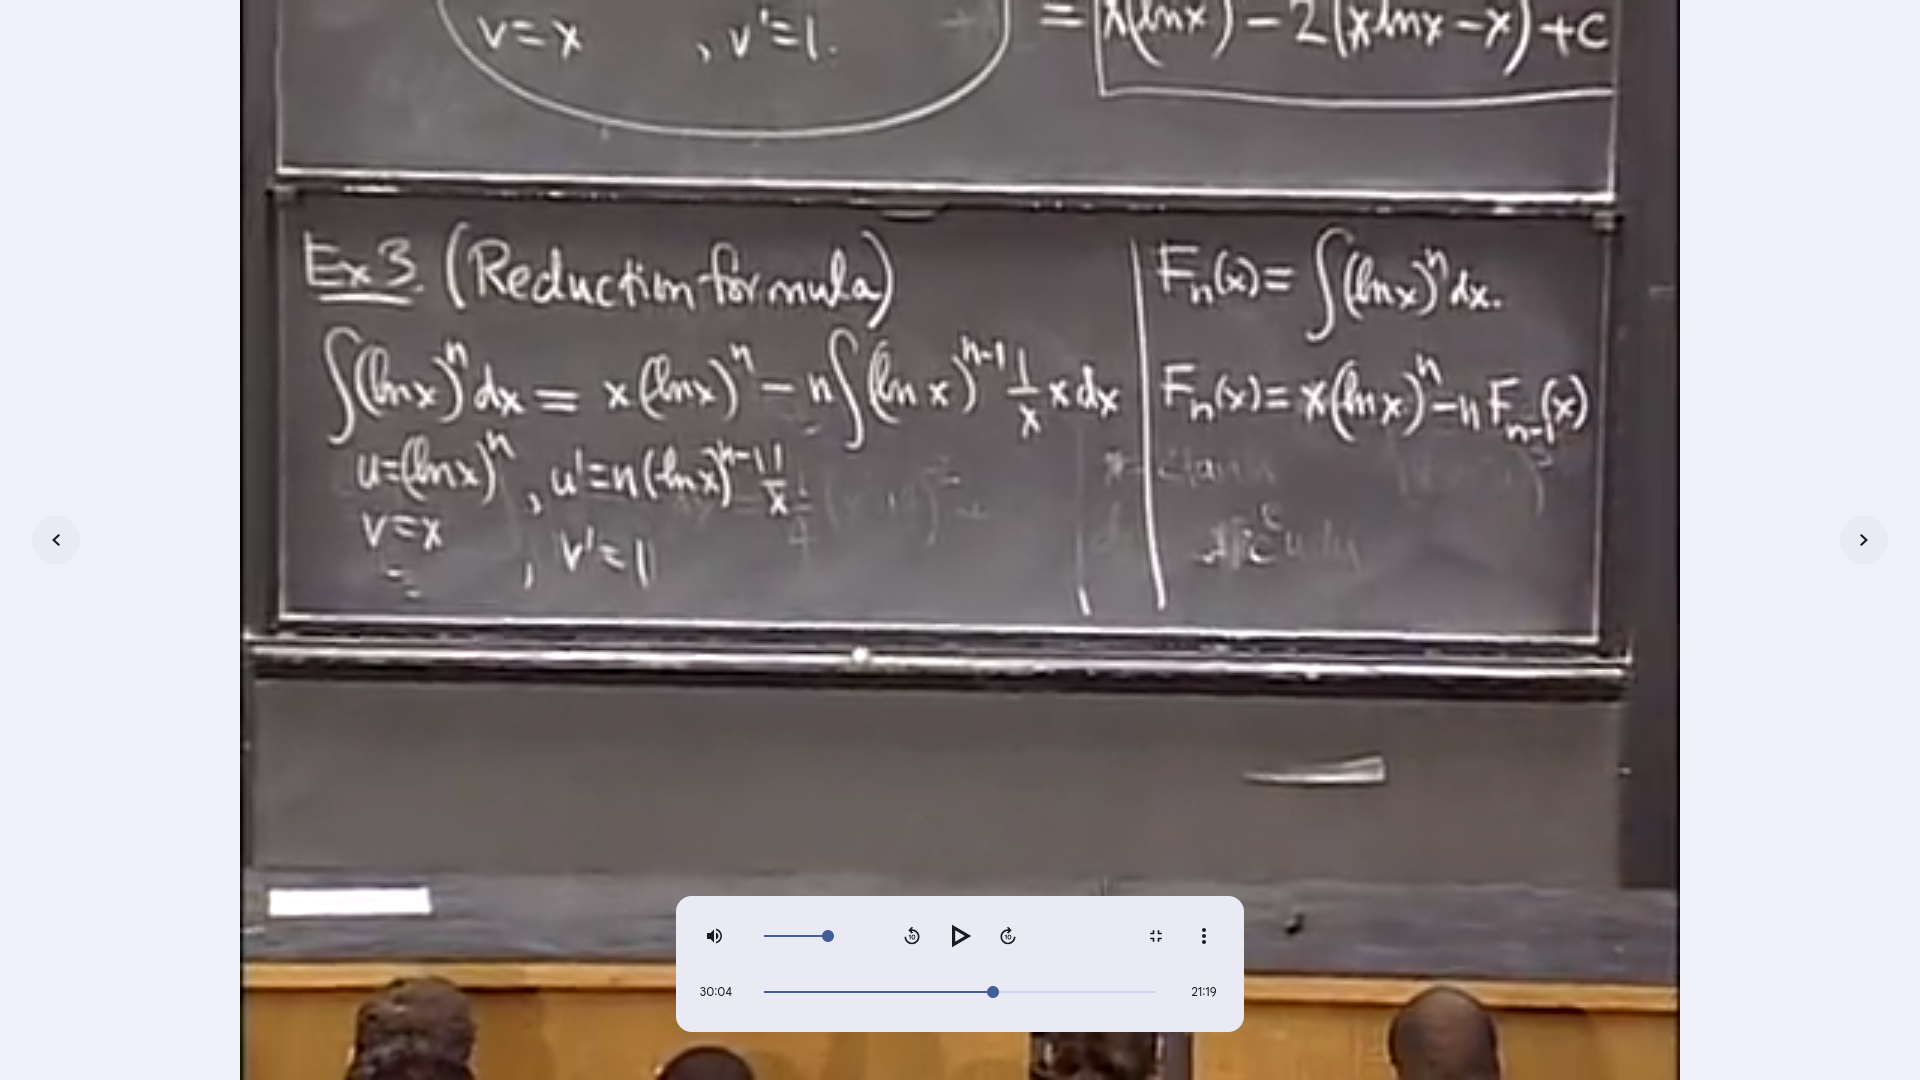 v=x , v'=1.
= x(lnx) - 2(xlnx-x)+c
Ex 3. (Reduction formula)
∫(lnx)ⁿdx = x(lnx)ⁿ - n∫(ln x)ⁿ⁻¹ 1/x x dx
u=(lnx)ⁿ , u'=n(lnx)ⁿ⁻¹ 1/x
v=x , v'=1
Fₙ(x)= ∫(lnx)ⁿdx.
Fₙ(x)= x(lnx)ⁿ-nFₙ₋₁(x)
10
10
30:04
21:19